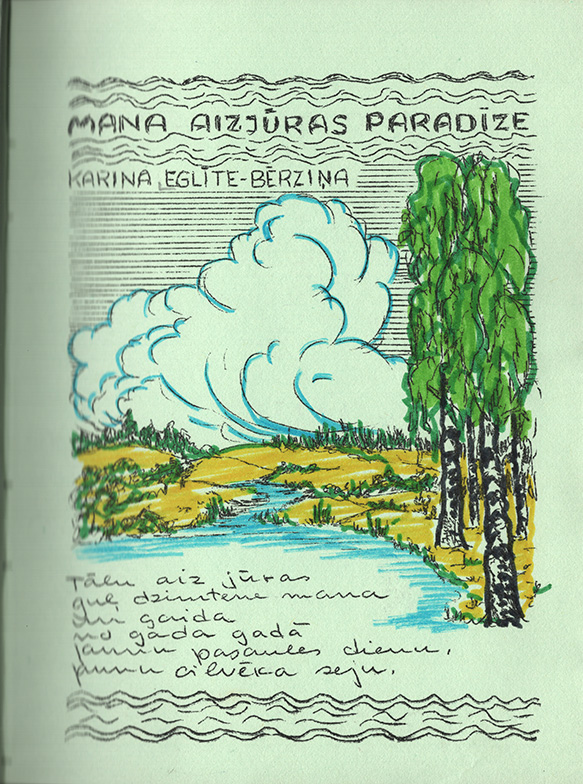 MANA AIZJŪRAS PARADĪZE
KARINA EGLĪTE-BĒRZIŅA
Tālu aiz jūras
guļ dzimtene mana
un gaida
no gada gadā
jaunu pasaules dienu,
jaunu cilvēka seju.